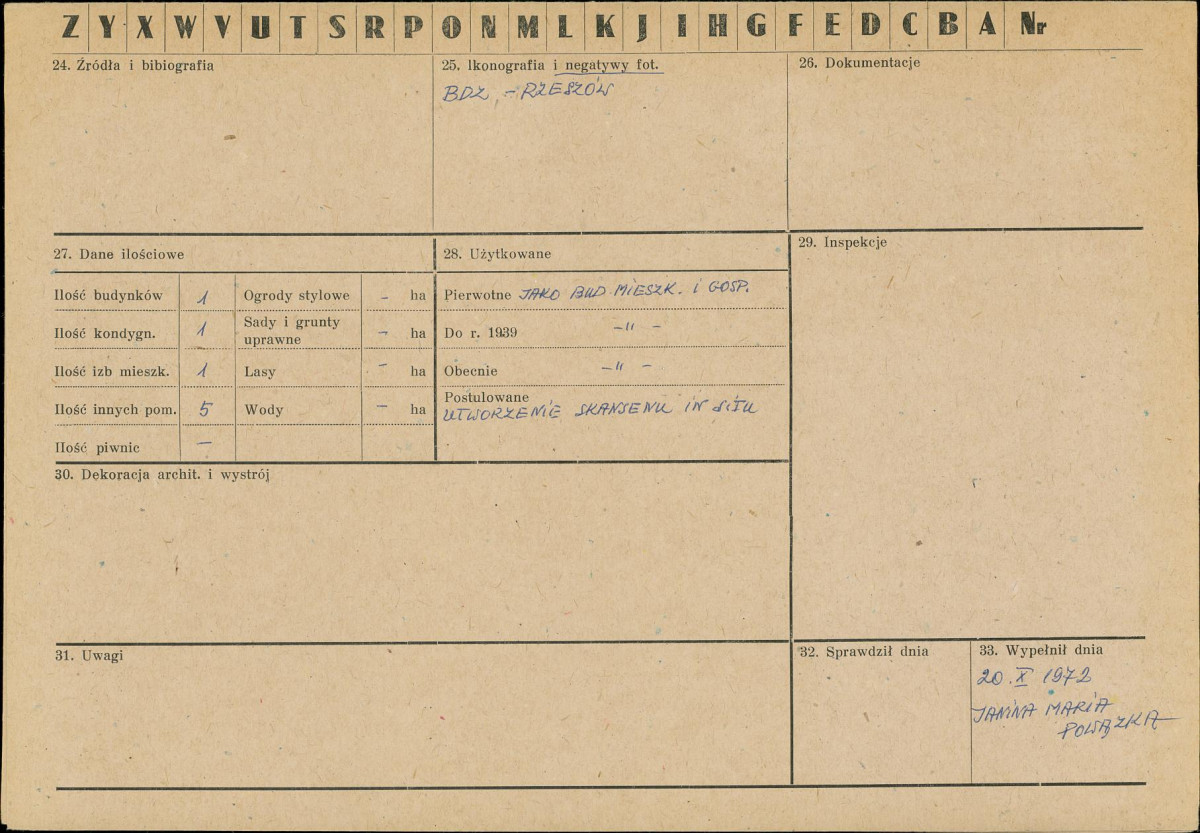 Z Y X W V U T S R P O N M L K J I H G F E D C B A Nr
24. Źródła i bibiografia
25. Ikonografia i negatywy fot.
BDZ – RZESZÓW
26. Dokumentacje
27. Dane ilościowe
Ilość budynków 1 Ogrody stylowe – ha
Ilość kondygn. 1 Sady i grunty uprawne – ha
Ilość izb mieszk. 1 Lasy – ha
Ilość innych pom. 5 Wody – ha
Ilość piwnic –
28. Użytkowane
Pierwotne JAKO BUD. MIESZK. I GOSP.
Do r. 1939 –"–
Obecnie –"–
Postulowane
UTWORZENIE SKANSENU IN SITU
29. Inspekcje
30. Dekoracja archit. i wystrój
31. Uwagi
32. Sprawdził dnia
33. Wypełnił dnia
20.X 1972
JANINA MARIA
POWĄZKA